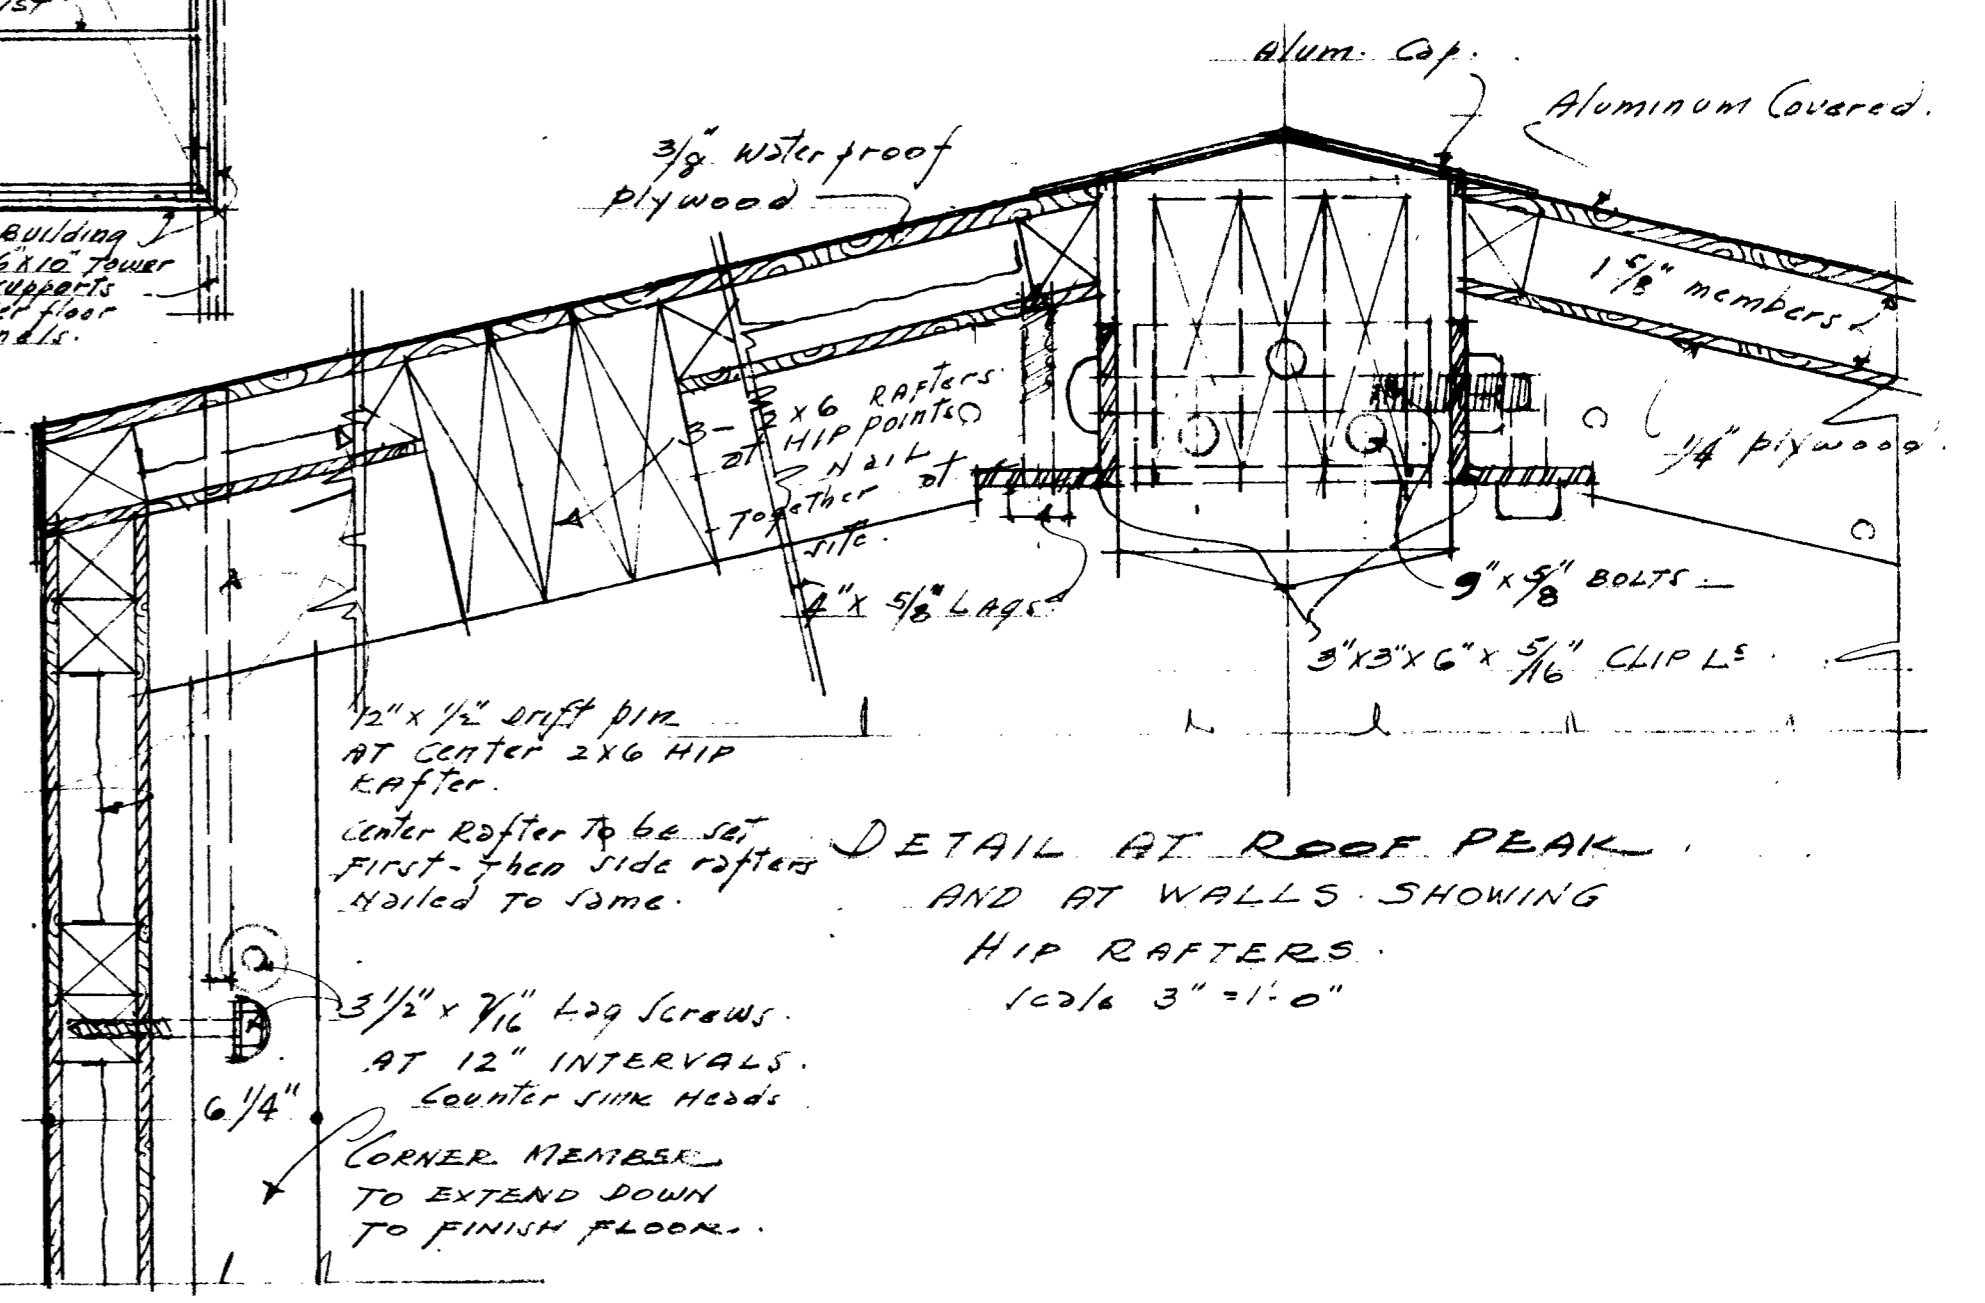 IST
Building
6"x10" Tower
supports
floor
Alum. Cap.
Aluminum Covered.
3/8" Waterproof
plywood
1 5/8" members
1/4" plywood.
3- 2x6 RAFTERS
at HIP points
Nail
Together at
site.
4" x 5/8" LAGS
9" x 5/8" BOLTS
3"x3"x6"x 5/16" CLIP Ls.
12" x 1/2" Drift pin
AT center 2x6 HIP
RAfter.
Center Rafter To be set
First-Then side rafters
Nailed To same.
DETAIL AT ROOF PEAK.
AND AT WALLS SHOWING
HIP RAFTERS.
Scale 3" = 1'-0"
3 1/2" x 7/16" Lag Screws.
AT 12" INTERVALS.
Counter sink Heads
6 1/4"
CORNER MEMBER
TO EXTEND DOWN
TO FINISH FLOOR.